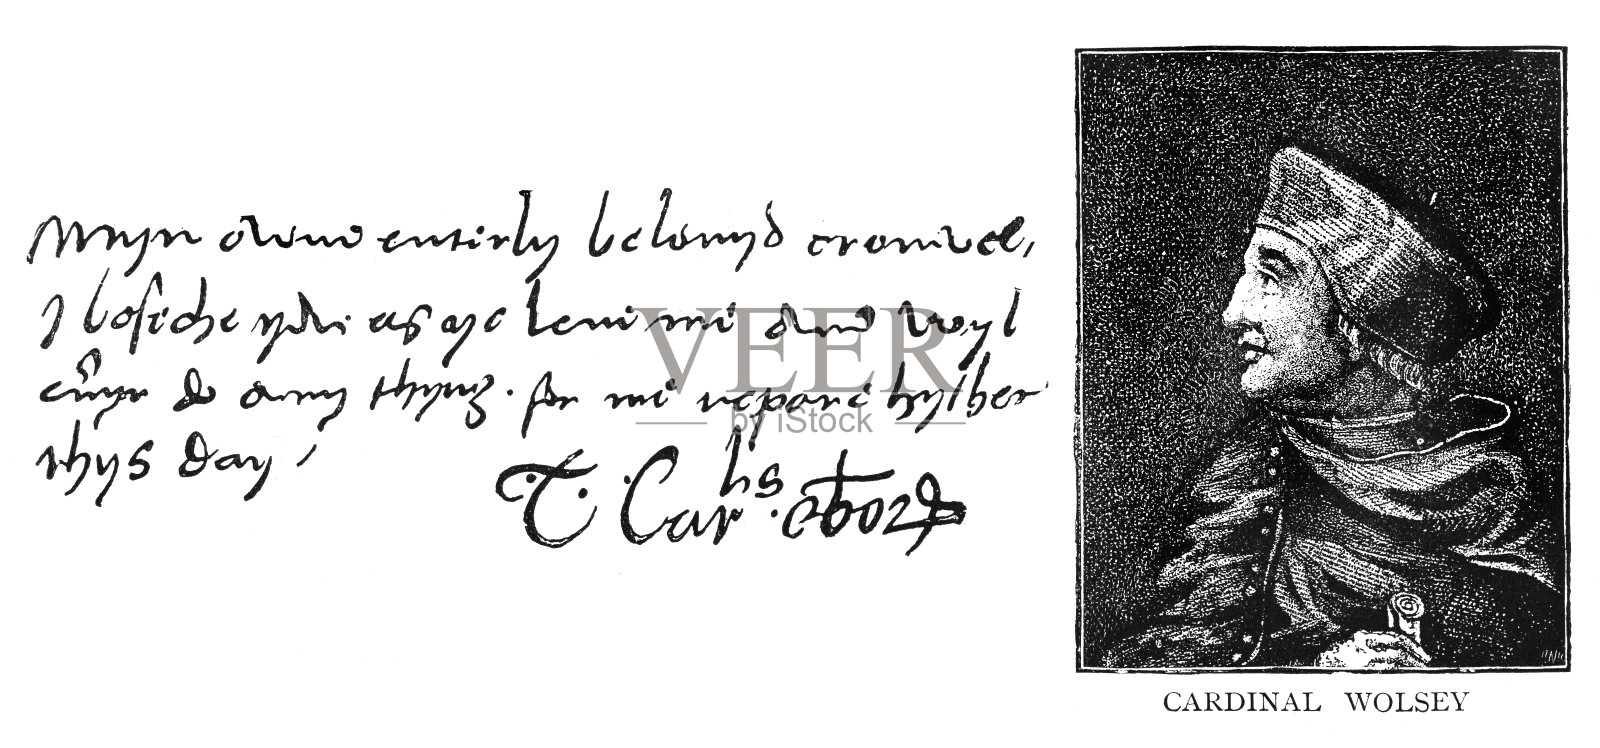 Myn owne entirly belovyd cromwel,
I beseche you as ye love me and wyl
evyr do any thyng. for me repare hyther
thys day/
T. Car^lis. ebor
CARDINAL WOLSEY
VEER
by iStock